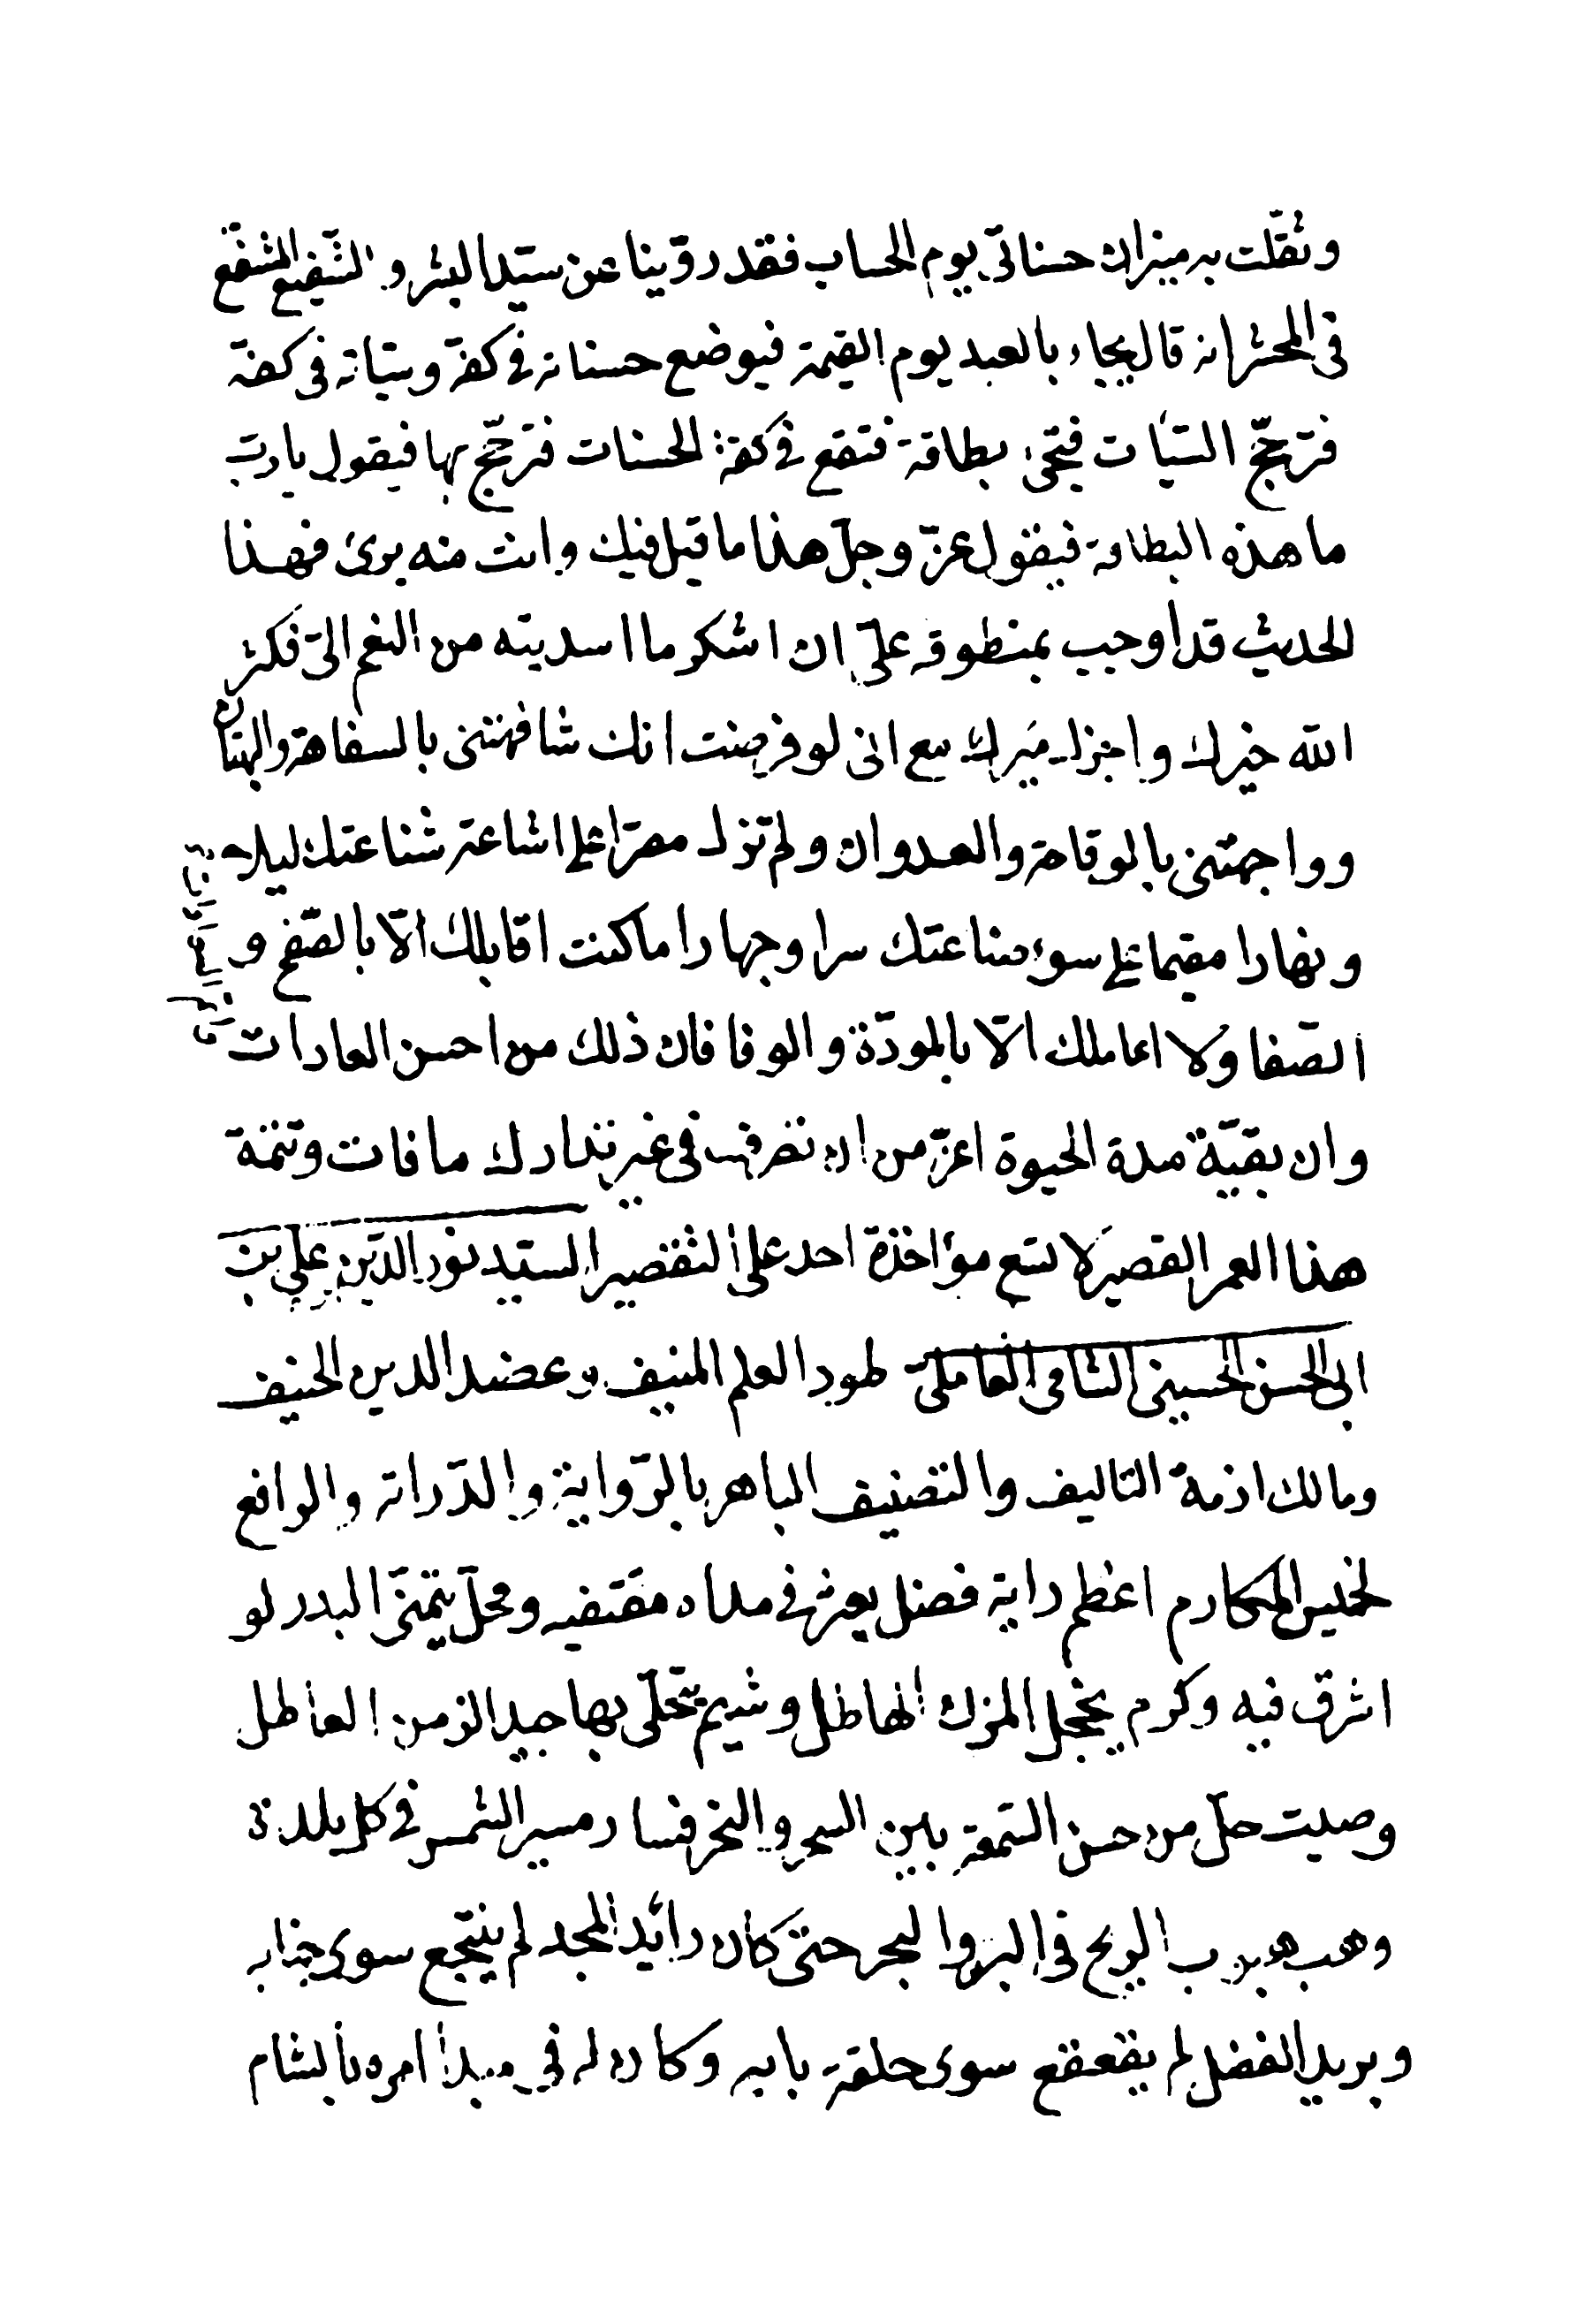 وثقّلت به ميزان حسناتى يوم الحساب فقد روّينا عن سيّد البشر والشّفيع المشفّع
فى المحشر انه قال يجاء بالعبد يوم القيمة فيوضع حسناته فى كفة وسيّاته فى كفة
فترجّح السيّات فتجئ بطاقة فتقع فى كفة الحسنات فترجّح بها فيقول يا ربّ
ما هذه البطاقة فيقول عزّ وجلّ هذا ما قيل فيك وانت منه برئ فهذا
الحديث قد اوجب بمنطوقه علىّ ان اشكر ما اسديته من النعم الىّ فكثر
الله خيرك واجزل ميرك مع انى لو فرضت انك شافهتنى بالسفاهة والبهتان
وواجهتنى بالوقاحة والعدوان ولم تزل مصرّا على اشاعة شناعتك ليلا
ونهارا مقيما على سوء صناعتك سرا وجهارا ما كنت اقابلك الّا بالصّفح و
الصّفا ولا اعاملك الّا بالمودّة والوفا فان ذلك من احسن العادات
وان بقيّة مدة الحيوة اعزّ من ان تصرف فى غير تدارك ما فات وتتمة
هذا العمر القصير لا تسع مؤاخذة احد على التقصير السيّد نور الدّين على بن
ابى الحسن الحسينى الشامى العاملىّ طود العلم المنيف وعضد الدين الحنيف
ومالك ازمة التاليف والتصنيف الباهر بالرّواية والدّراية والرافع
لخميس المكارم اعظم راية فضل يعثر فى مداه مقتفيه ومحلّ يتمنّى البدر لو
اشرق فيه وكرم يخجل المزن الهاطل وشيم يتحلّى بها جيد الزمن العاطل
وصيت حلّ من حسن السّمعة بين السحر والنحر فسار مسير الشمس فى كل بلدة
وهب هبوب الريح فى البر والبحر حتى كان رائد المجد لم ينتجع سوى جنابه
وبريد الفضل لم يقعقع سوى حلقة بابه وكان له فى مبدأ امره بالشام